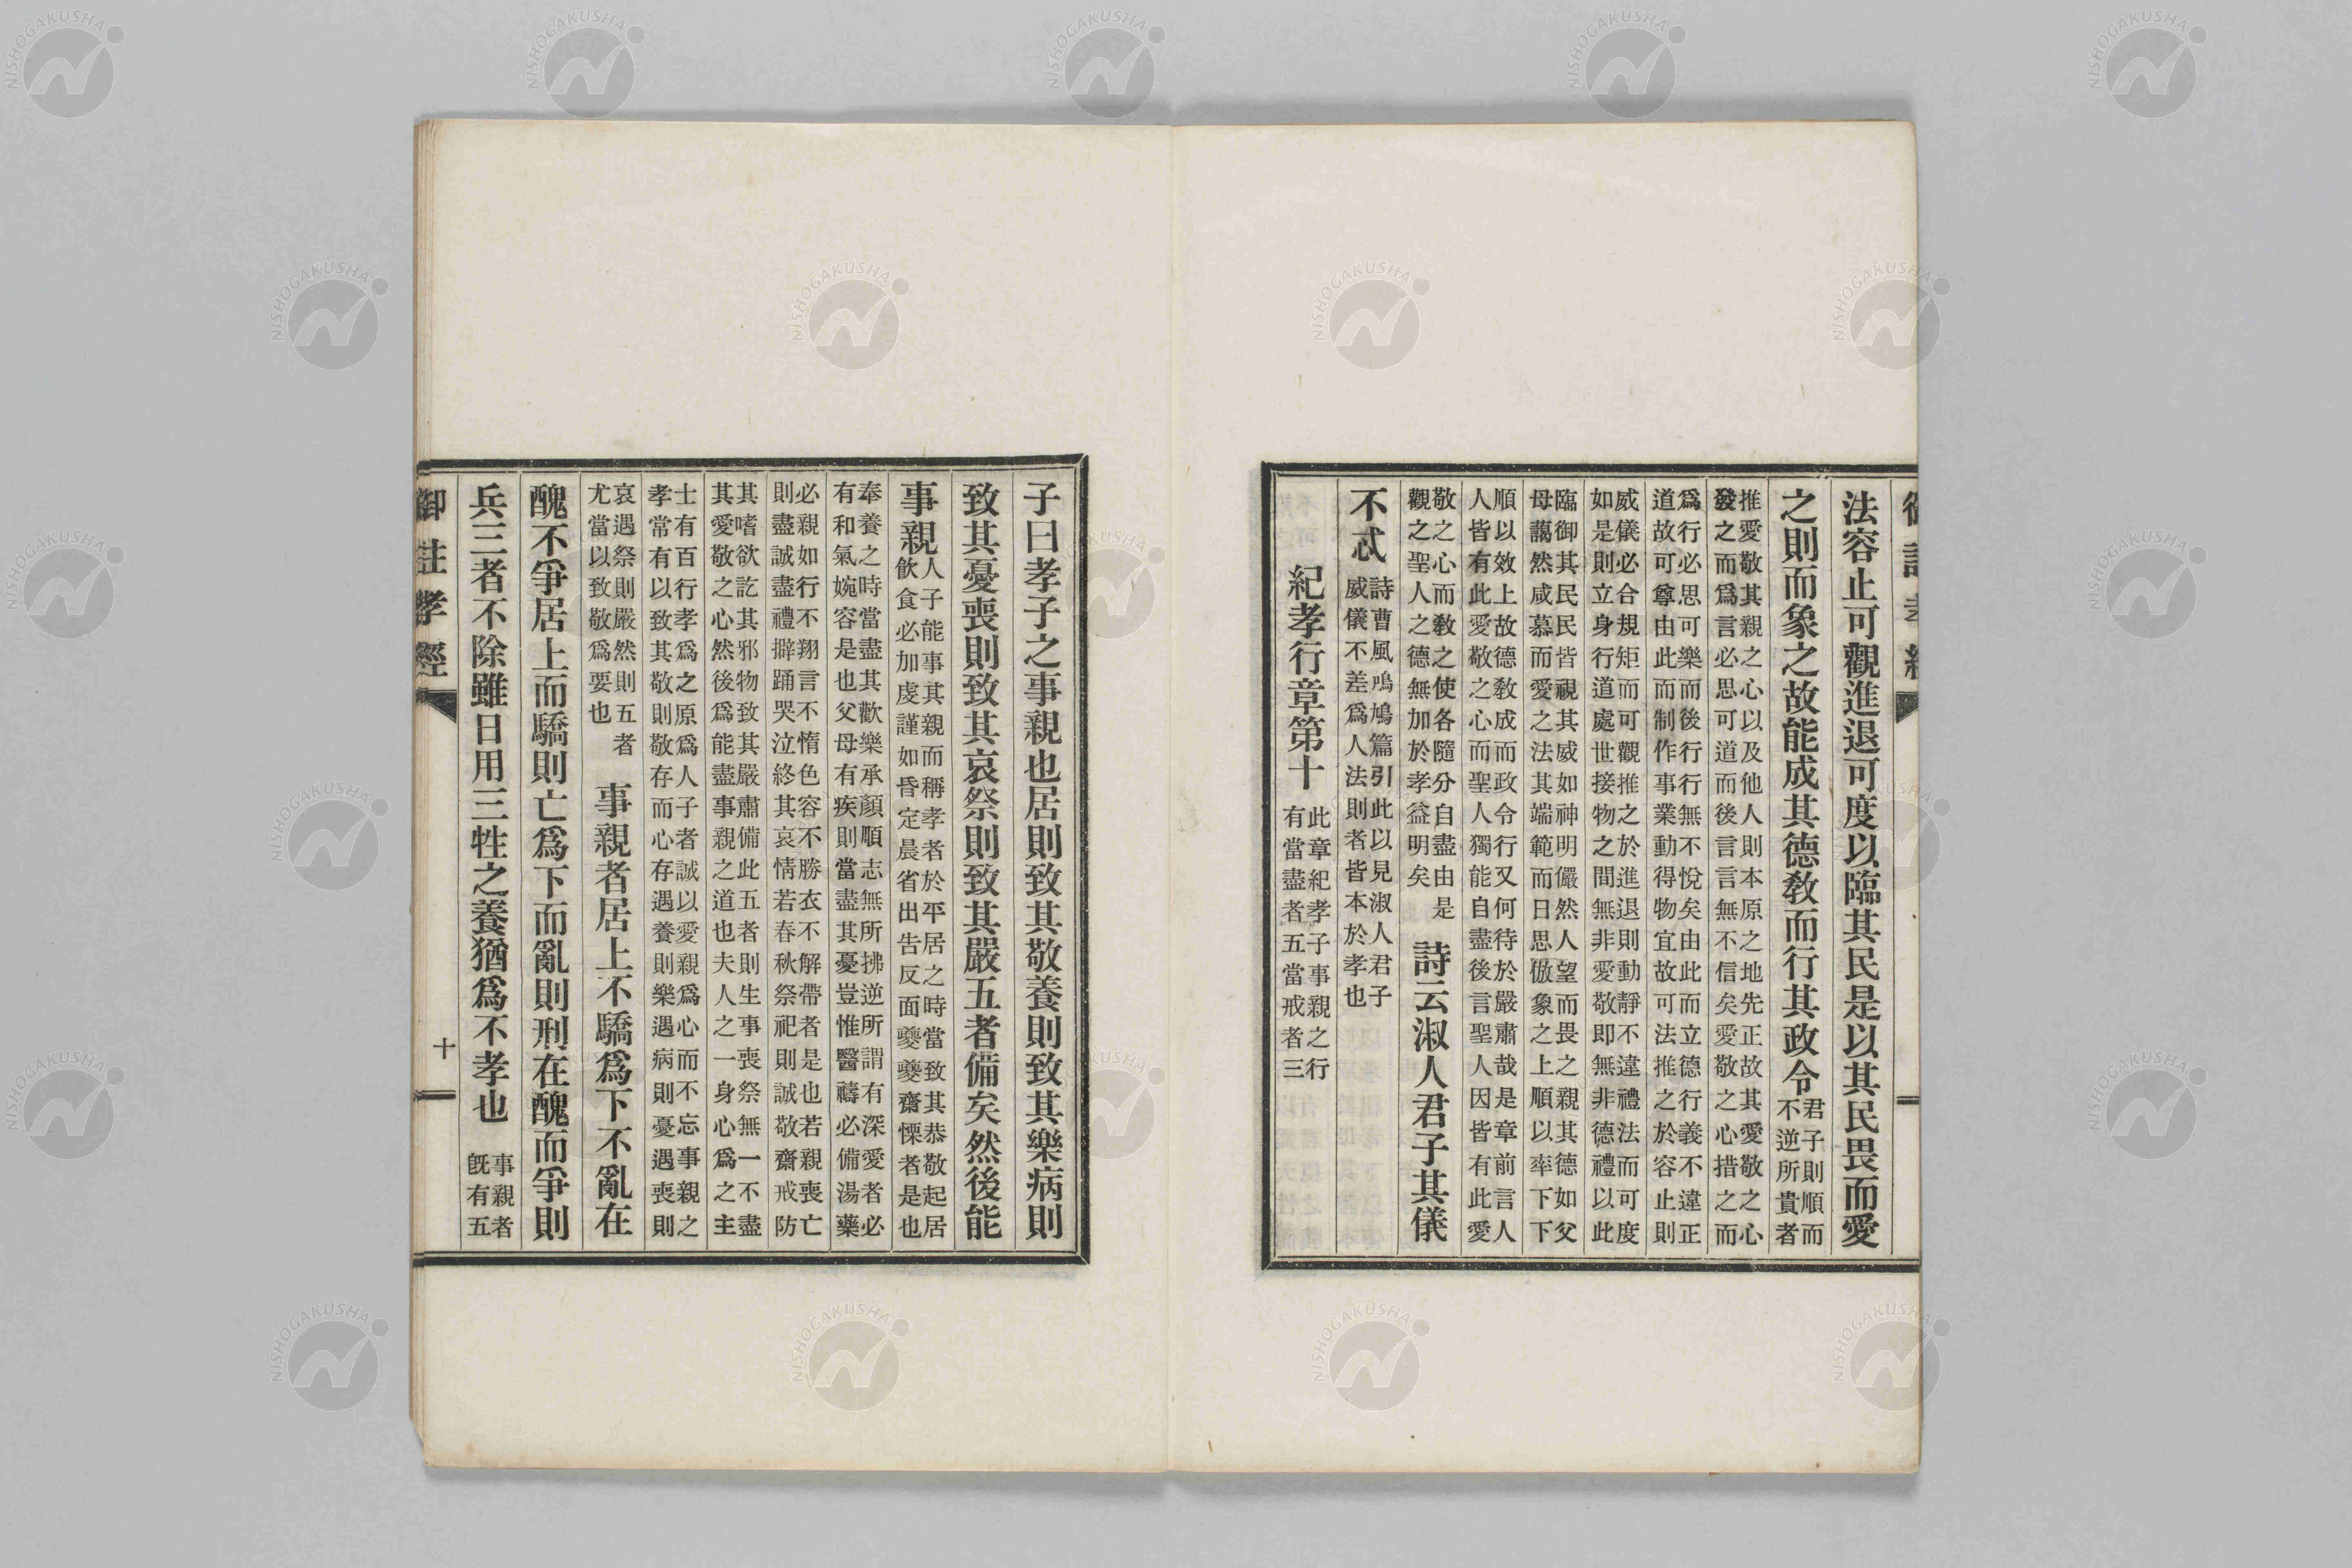 法容止可觀進退可度以臨其民是以其民畏而愛
之則而象之故能成其德敎而行其政令
君子則順而
不逆所貴者
推愛敬其親之心以及他人則本原之地先正故其愛敬之心
發之而爲言必思可道而後言言無不信矣愛敬之心措之而
爲行必思可樂而後行行無不悅矣由此而立德行義不違正
道故可尊由此而制作事業動得物宜故可法推之於容止則
威儀必合規矩而可觀推之於進退則動靜不違禮法而可度
如是則立身行道處世接物之間無非愛敬即無非德禮以此
臨御其民民皆視其威如神明儼然人望而畏之親其德如父
母藹然咸慕而愛之法其端範而日思倣象之上順以率下下
順以效上故德敎成而政令行又何待於嚴肅哉是章前言人
人皆有此愛敬之心而聖人獨能自盡後言聖人因皆有此愛
敬之心而敎之使各隨分自盡由是
觀之聖人之德無加於孝益明矣
詩云淑人君子其儀
不忒
詩曹風鳲鳩篇引此以見淑人君子
威儀不差爲人法則者皆本於孝也
紀孝行章第十
此章紀孝子事親之行
有當盡者五當戒者三
子曰孝子之事親也居則致其敬養則致其樂病則
致其憂喪則致其哀祭則致其嚴五者備矣然後能
事親
人子能事其親而稱孝者於平居之時當致其恭敬起居
飲食必加虔謹如昏定晨省出告反面夔夔齋慄者是也
奉養之時當盡其歡樂承顏順志無所拂逆所謂有深愛者必
有和氣婉容是也父母有疾則當盡其憂豈惟醫禱必備湯藥
必親如行不翔言不惰色容不勝衣不解帶者是也若親喪亡
則盡誠盡禮擗踊哭泣終其哀情若春秋祭祀則誠敬齋戒防
其嗜欲訖其邪物致其嚴肅備此五者則生事喪祭無一不盡
其愛敬之心然後爲能盡事親之道也夫人之一身心爲之主
士有百行孝爲之原爲人子者誠以愛親爲心而不忘事親之
孝常有以致其敬則敬存而心存遇養則樂遇病則憂遇喪則
哀遇祭則嚴然則五者
尤當以致敬爲要也
事親者居上不驕爲下不亂在
醜不爭居上而驕則亡爲下而亂則刑在醜而爭則
兵三者不除雖日用三牲之養猶爲不孝也
事親者
旣有五
御註孝經
十